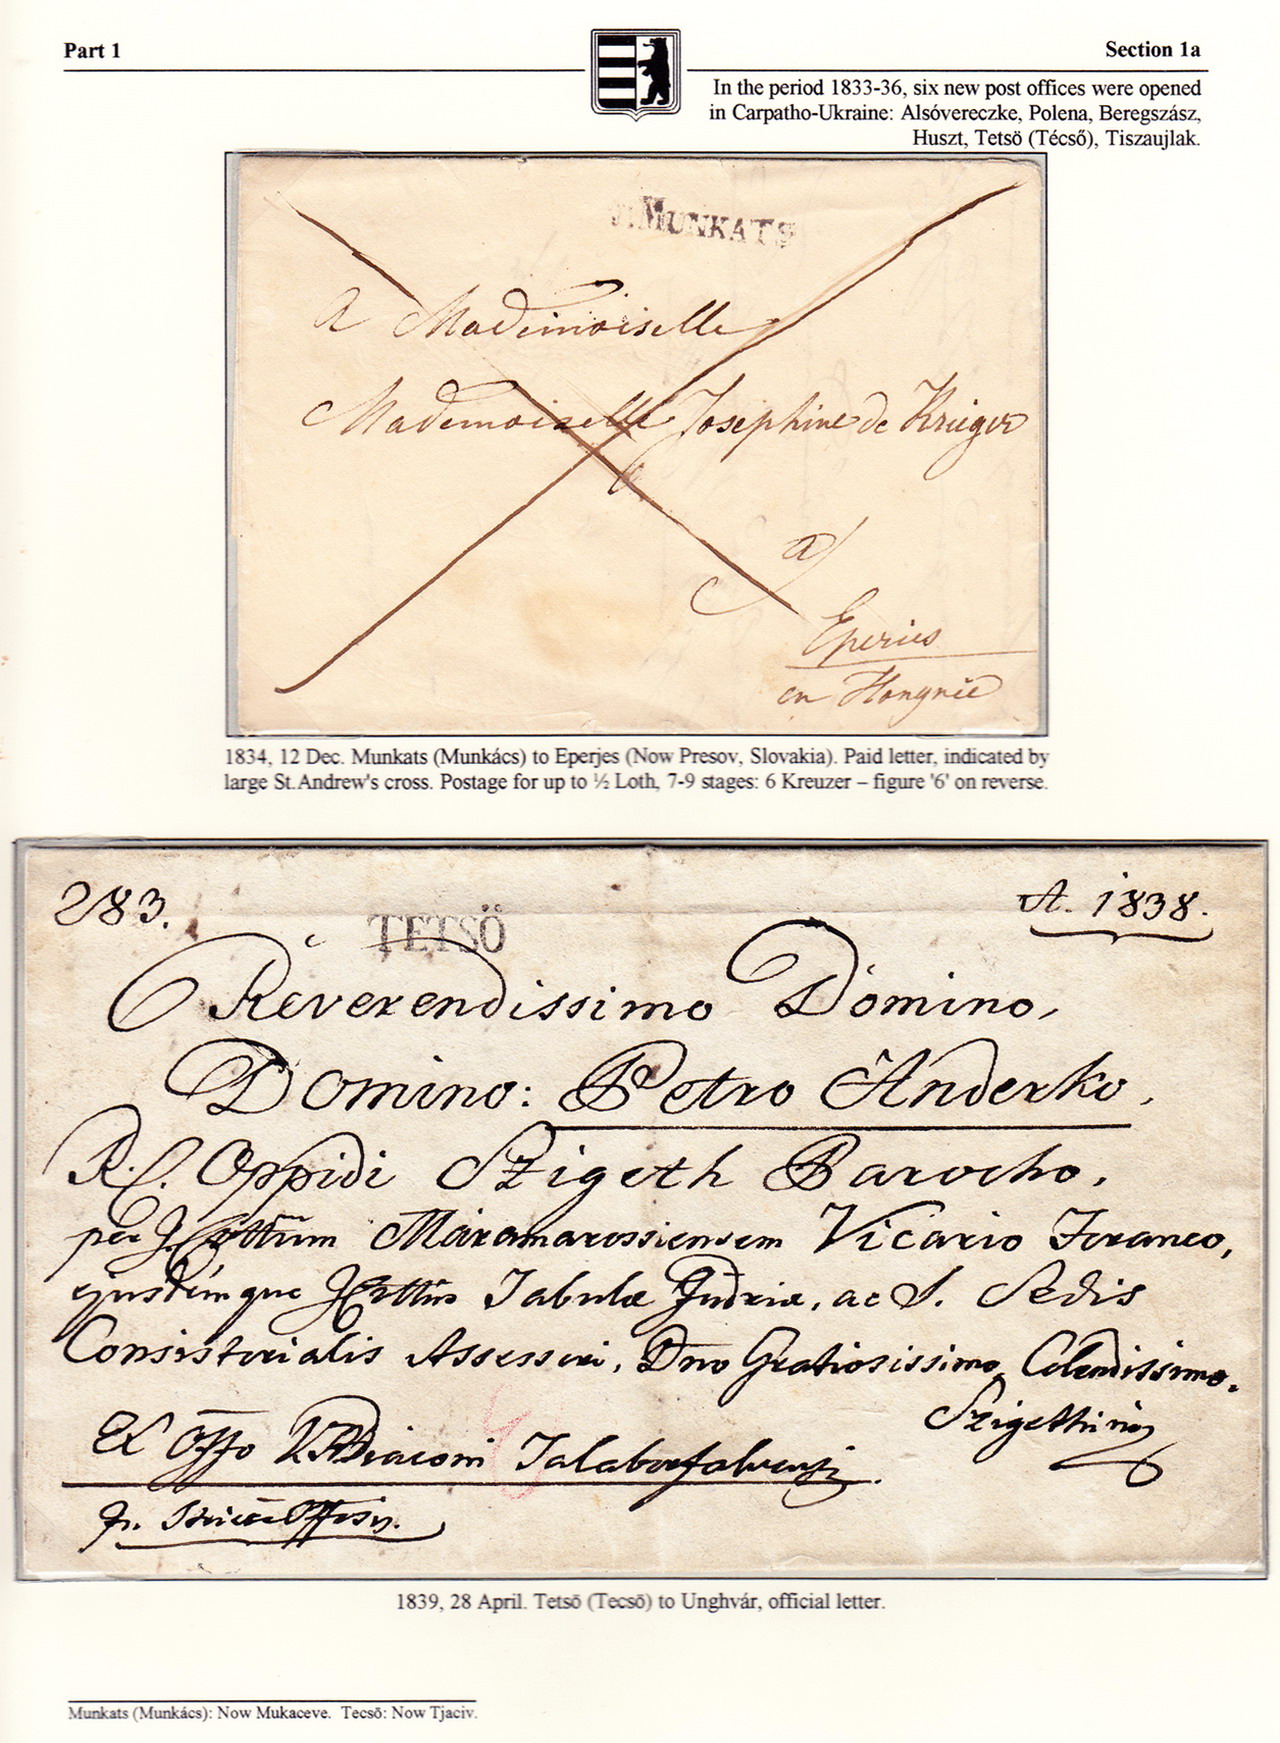 Part 1
Section 1a
In the period 1833-36, six new post offices were opened
in Carpatho-Ukraine: Alsóvereczke, Polena, Beregszász,
Huszt, Tetsö (Técső), Tiszaujlak.
MUNKATS
a Mademoiselle
Mademoiselle Josephine de Krieger
a
Eperies
en Hongrie
1834, 12 Dec. Munkats (Munkács) to Eperjes (Now Presov, Slovakia). Paid letter, indicated by
large St.Andrew's cross. Postage for up to ½ Loth, 7-9 stages: 6 Kreuzer – figure '6' on reverse.
283.
A. 1838.
TETSÖ
Reverendissimo Domino,
Domino: Petro Anderko,
Oppidi Szigeth Parocho,
per Maramarossiensem Vicario Foraneo,
ejusdemque Tabulæ ac S. Sedis
Consistorialis Assessori, Dno Gratiosissimo, Colendissimo.
Ex Offo
1839, 28 April. Tetsö (Tecsö) to Unghvár, official letter.
Munkats (Munkács): Now Mukaceve. Tecsö: Now Tjaciv.